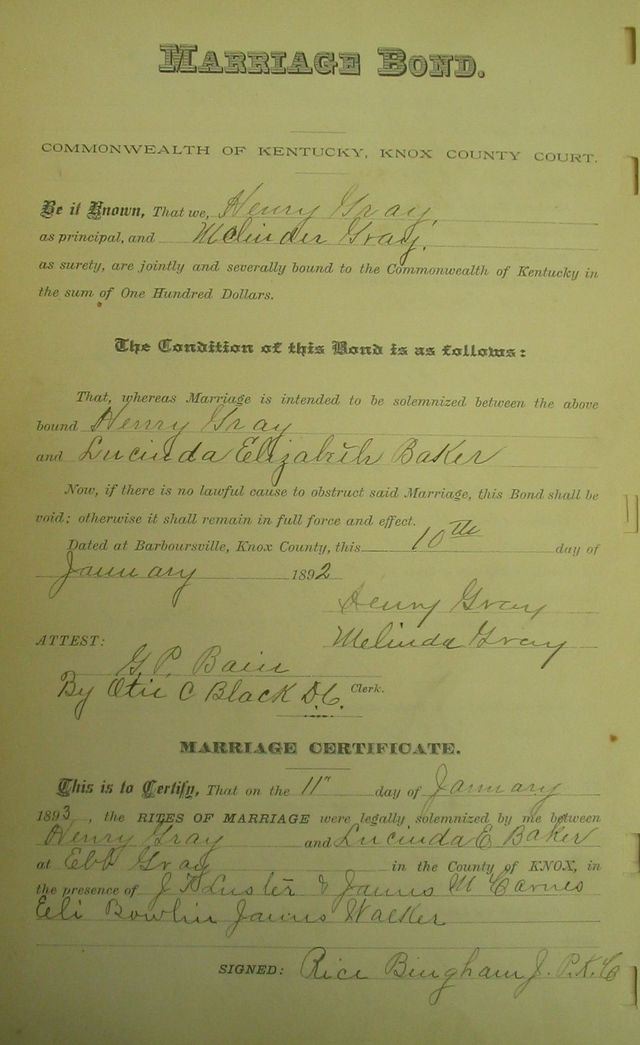 MARRIAGE BOND.
COMMONWEALTH OF KENTUCKY, KNOX COUNTY COURT.
Be it Known, That we, Henry Gray,
as principal, and Melinder Gray,
as surety, are jointly and severally bound to the Commonwealth of Kentucky in
the sum of One Hundred Dollars.
The Condition of this Bond is as follows:
That, whereas Marriage is intended to be solemnized between the above
bound Henry Gray
and Lucinda Elizabeth Baker
Now, if there is no lawful cause to obstruct said Marriage, this Bond shall be
void; otherwise it shall remain in full force and effect.
Dated at Barboursville, Knox County, this 10th day of
January 1892
Henry Gray
ATTEST: Melinda Gray
G. P. Bain
By Otis C Black D.C. Clerk.
MARRIAGE CERTIFICATE.
This is to Certify, That on the 11" day of January
1893, the RITES OF MARRIAGE were legally solemnized by me between
Henry Gray and Lucinda E. Baker
at Ebb Gray in the County of KNOX, in
the presence of J H Luster & James M Carnes
Eli Bowlin James Walker
SIGNED: Rice Bingham J. P. K. C